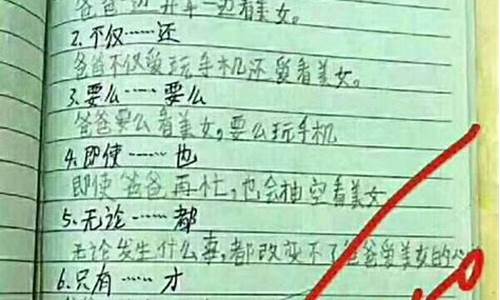 爸爸一边开车一边看美女。
2.不仅……还
爸爸不仅爱玩手机还爱看美女。
3.要么……要么
爸爸要么看美女,要么玩手机
4.即使……也
即使爸爸再忙,也会抽空看美女
5.无论……都
无论发生什么事,都改变不了爸爸爱美女的心
6.只有……才